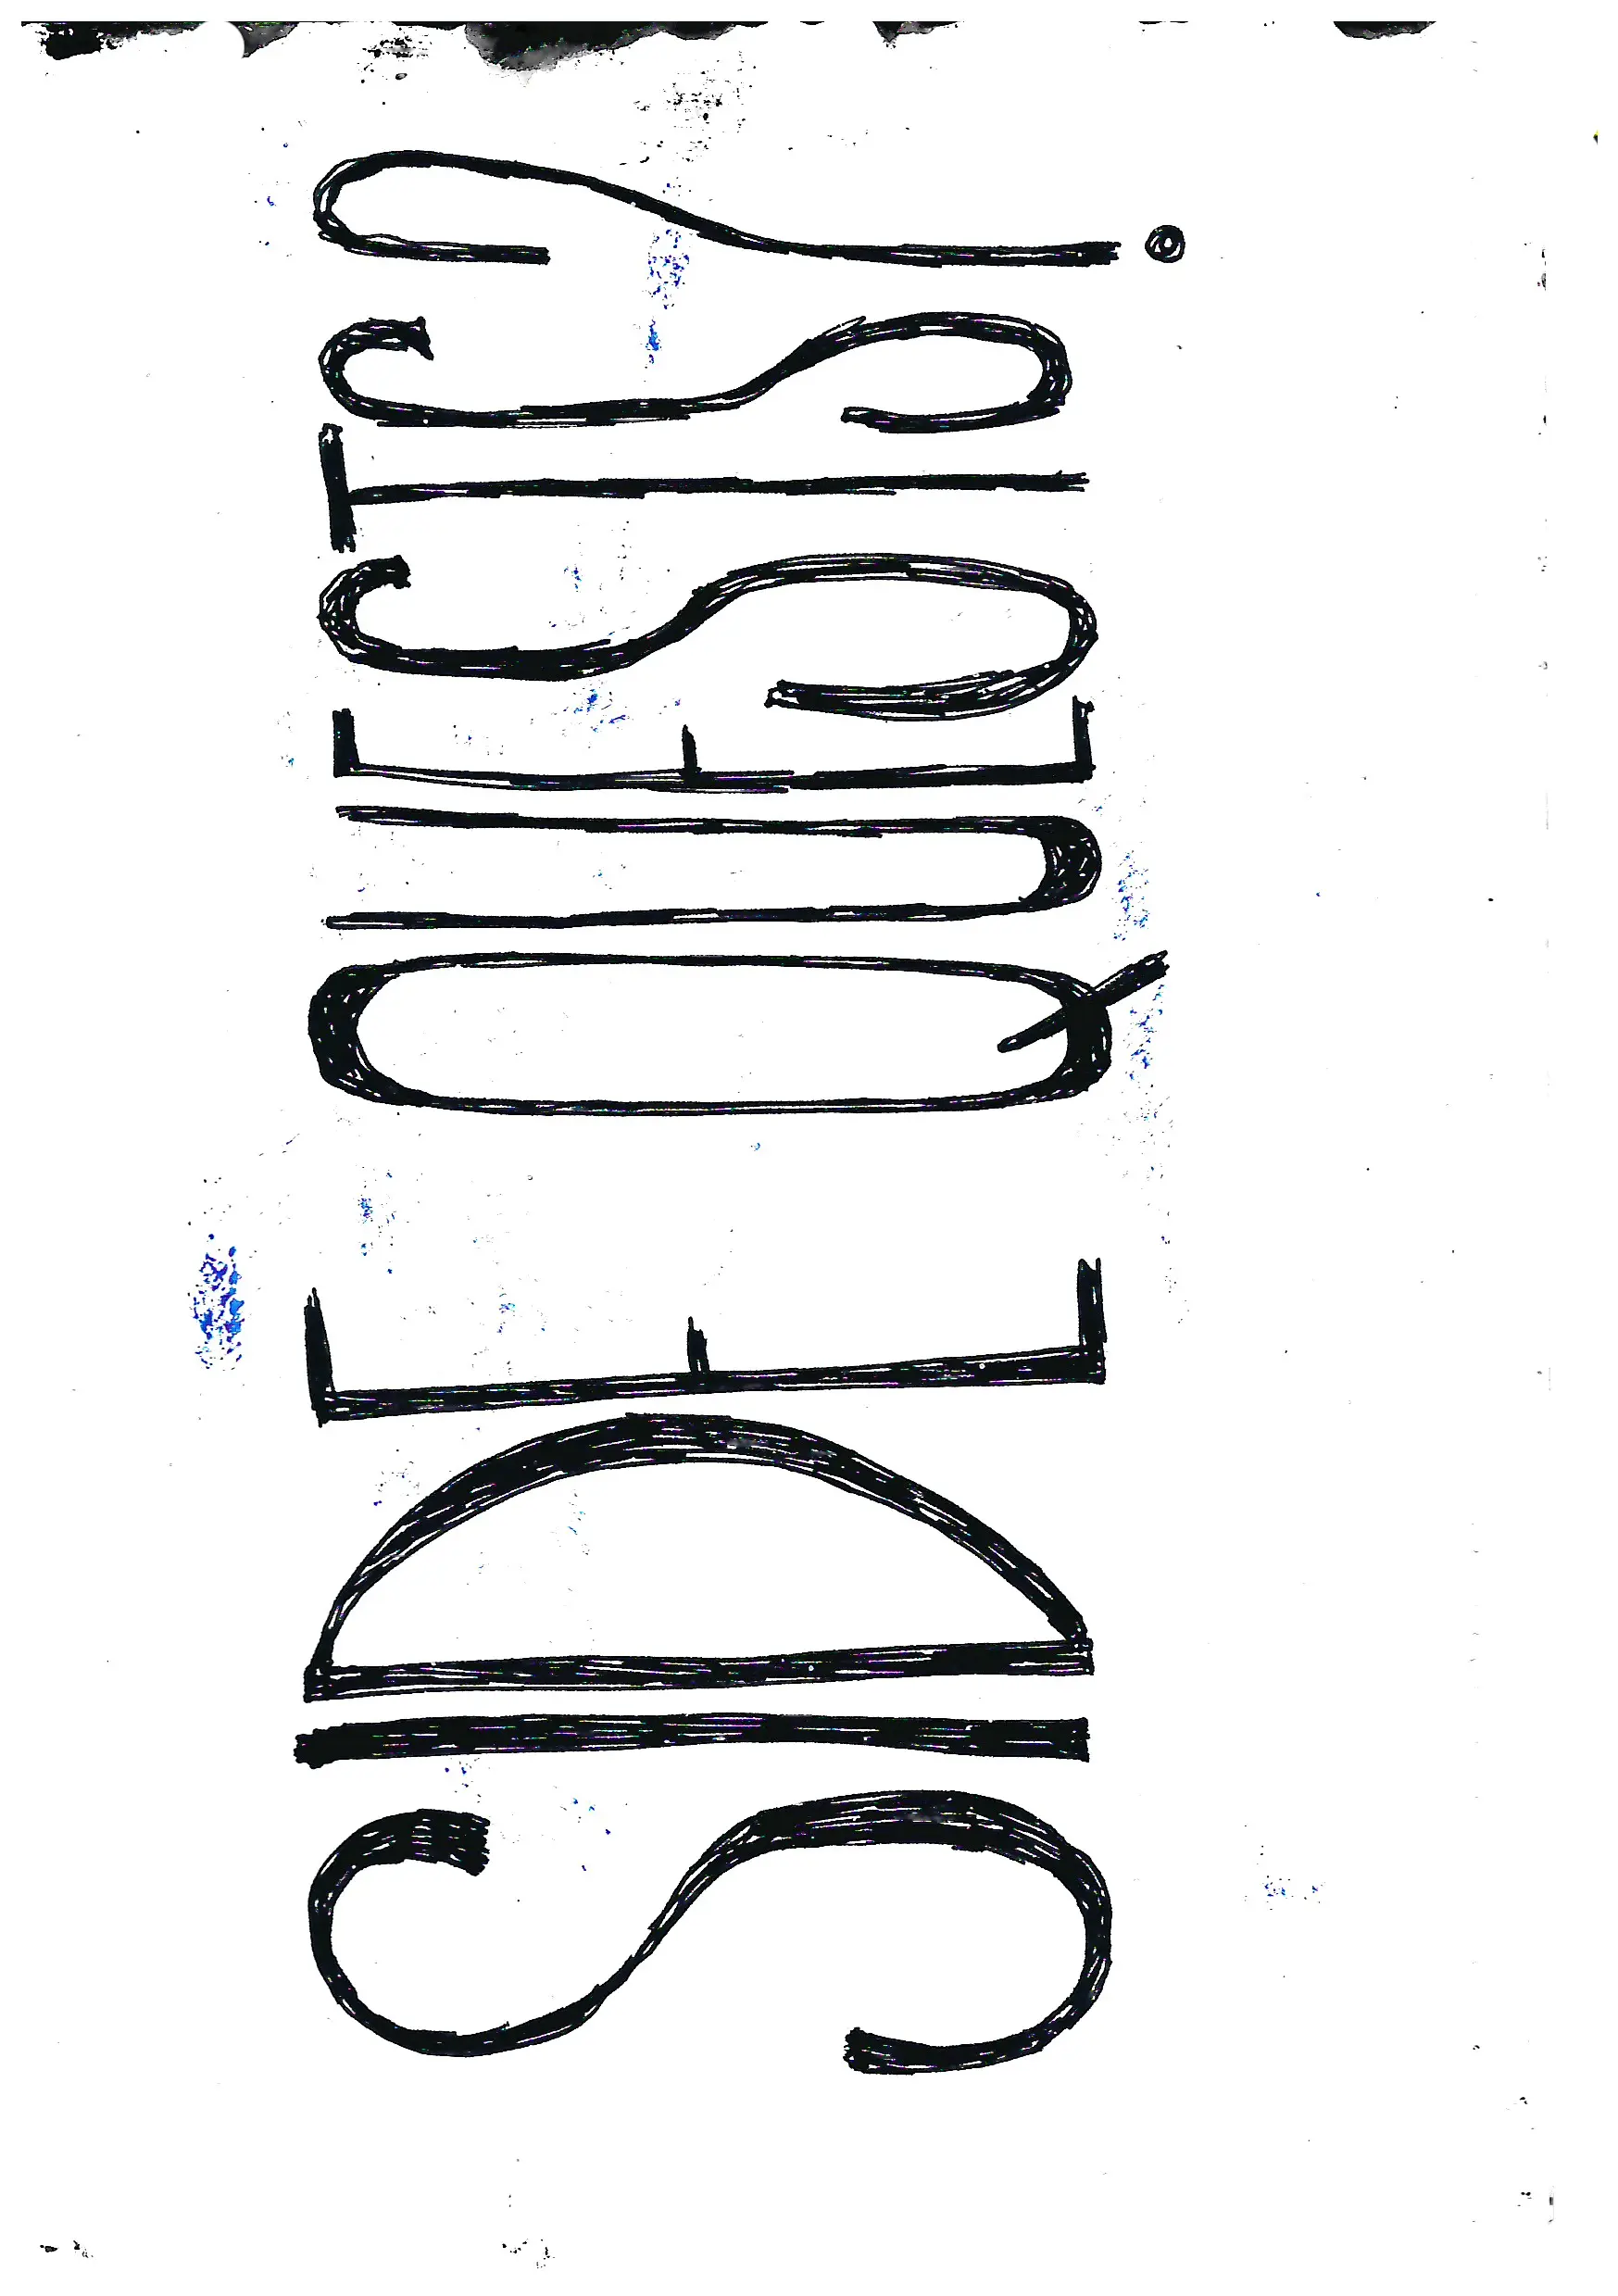 SIDE QUESTS?